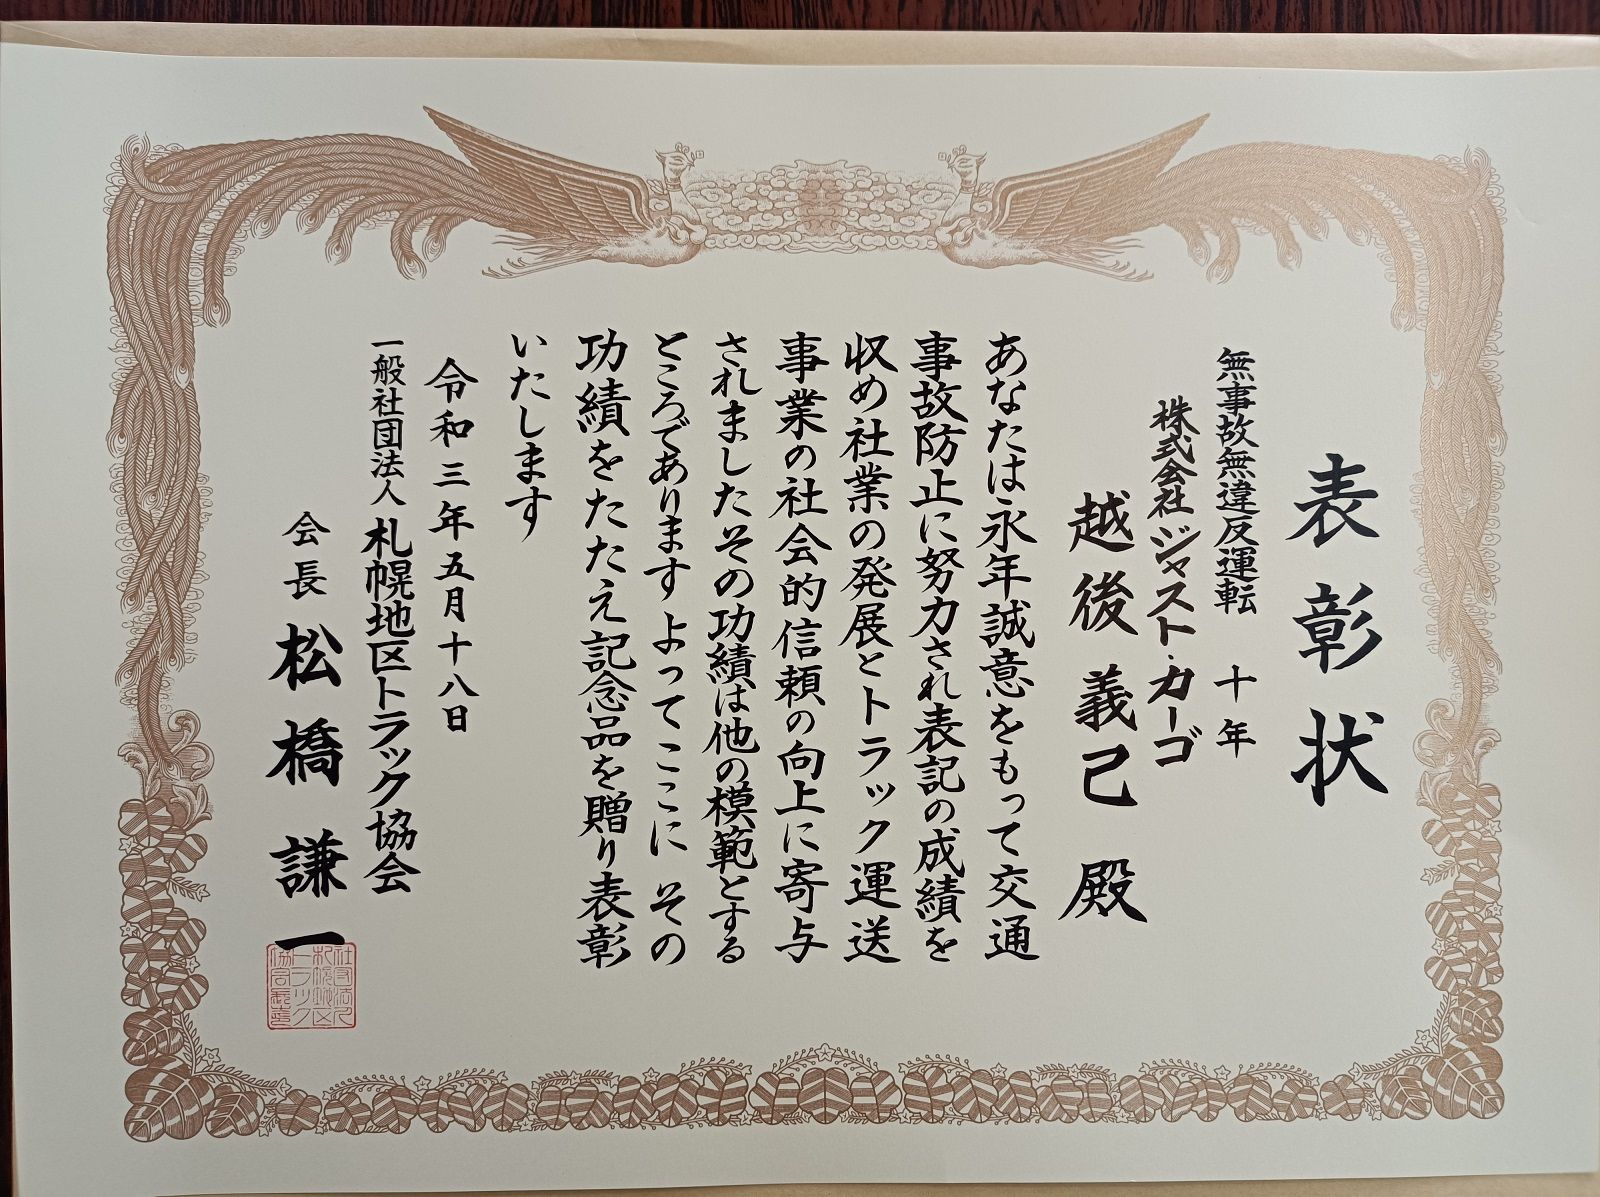 表彰状
無事故無違反運転　十年
株式会社ジャスト・カーゴ
越後義己殿
あなたは永年誠意をもって交通
事故防止に努力され表記の成績を
収め社業の発展とトラック運送
事業の社会的信頼の向上に寄与
されましたその功績は他の模範とする
ところであります よってここに その
功績をたたえ記念品を贈り表彰
いたします
令和三年五月十八日
一般社団法人 札幌地区トラック協会
会長 松橋謙一